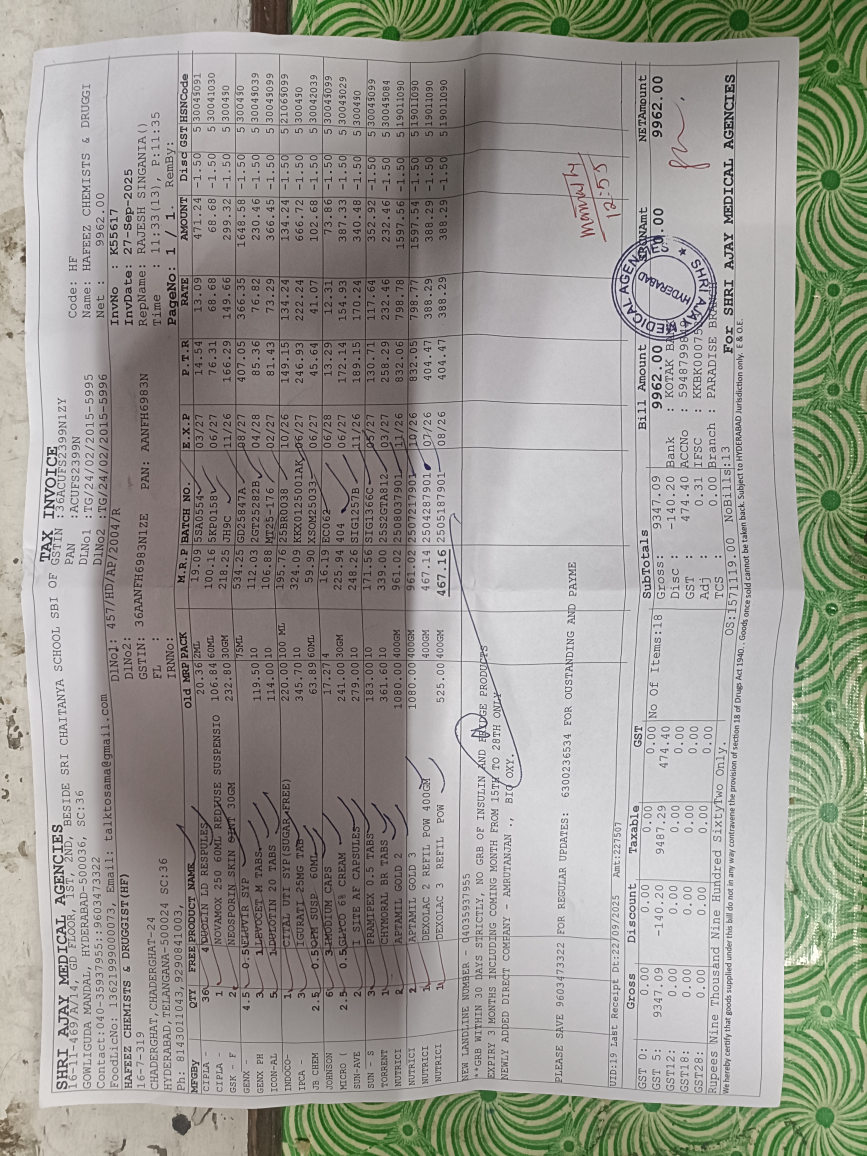 SHRI AJAY MEDICAL AGENCIES
16-11-469/A/14, GD FLOOR, 1ST, 2ND, BESIDE SRI CHAITANYA SCHOOL SBI OF
GOWLIGUDA MANDAL, HYDERABAD-500036, SC:36
Contact:040-35937955::9603473322
FoodLicNo: 13621999000073, Email: talktosama@gmail.com
TAX INVOICE
GSTIN :36ACUFS2399N1ZY
PAN :ACUFS2399N
DlNo1 :TG/24/02/2015-5995
DlNo2 :TG/24/02/2015-5996
Code: HF
Name: HAFEEZ CHEMISTS & DRUGGI
Net : 9962.00
HAFEEZ CHEMISTS & DRUGGIST(HF)
16-7-319
CHADERGHAT, CHADERGHAT-24
HYDERABAD, TELANGANA-500024 SC:36
Ph: 8143011043, 9290841003,
DlNo1: 457/HD/AP/2004/R
DlNo2:
GSTIN: 36AANFH6983N1ZE PAN: AANFH6983N
FL :
IRNNo:
InvNo : K55617
InvDate: 27-Sep-2025
RepName: RAJESH SINGANIA()
Time : 11:33(13), P:11:35
PageNo: 1 / 1. RemBy:
MFGBy QTY FREE PRODUCT NAME Old MRP PACK M.R.P BATCH NO. E.X.P P.T.R RATE AMOUNT Disc GST HSNCode
CIPLA 36 4 DUOLIN LD RESPULES 20.36 2ML 19.09 5SA0554 03/27 14.54 13.09 471.24 -1.50 5 30045091
CIPLA - 1 NOVAMOX 250 60ML REDIUSE SUSPENSIO 106.84 60ML 100.16 5KF0158 06/27 76.31 68.68 68.68 -1.50 5 30041030
GSK - F 2 NEOSPORIN SKIN OINT 30GM 232.80 30GM 218.25 UH9C 11/26 166.29 149.66 299.32 -1.50 5 300490
GENX - 4.5 0.5 ELUVIR SYP 75ML 534.25 GD25847A 08/27 407.05 366.35 1648.58 -1.50 5 300490
GENX PH 3 LEVOCET M TABS 119.50 10 112.03 ZGT25282B 04/28 85.36 76.82 230.46 -1.50 5 30049039
ICON-AL 5 114.00 10 106.88 MT25-176 02/27 81.43 73.29 366.45 -1.50 5 30049099
INDOCO- 1 CITAL UTI SYP(SUGAR FREE) 220.00 100 ML 195.76 25BR0038 10/26 149.15 134.24 134.24 -1.50 5 21069099
IPCA - 3 IGURATI 25MG TAB 345.70 10 324.09 06/27 246.93 222.24 666.72 -1.50 5 300490
JB CHEM 2.5 0.5 SUSP 60ML 63.89 60ML 59.90 XSOM25033 06/27 45.64 41.07 102.68 -1.50 5 30042039
JOHNSON 6 IMODIUM CAPS 17.27 4 16.19 EC062 06/28 13.29 12.31 73.86 -1.50 5 30049099
MICRO ( 2.5 0.5 GLYCO 6% CREAM 241.00 30GM 225.94 404 06/27 172.14 154.93 387.33 -1.50 5 30049029
SUN-AVE 2 I SITE AF CAPSULES 279.00 10 248.26 SIG1257B 11/26 189.15 170.24 340.48 -1.50 5 300490
SUN - S 3 PRAMIPEX 0.5 TABS 183.00 10 171.56 SIG1366C 05/27 130.71 117.64 352.92 -1.50 5 30049099
TORRENT 1 CHYMORAL BR TABS 361.60 10 339.00 25S2GTA812 03/27 258.29 232.46 232.46 -1.50 5 30049084
NUTRICI 2 APTAMIL GOLD 2 1080.00 400GM 961.02 2508037901 11/26 832.06 798.78 1597.56 -1.50 5 19011090
NUTRICI 2 APTAMIL GOLD 3 1080.00 400GM 961.02 2507217901 10/26 832.05 798.77 1597.54 -1.50 5 19011090
NUTRICI 1 DEXOLAC 2 REFIL POW 400GM 400GM 467.14 2504287901 07/26 404.47 388.29 388.29 -1.50 5 19011090
NUTRICI 1 DEXOLAC 3 REFIL POW 525.00 400GM 467.16 2505187901 08/26 404.47 388.29 388.29 -1.50 5 19011090
NEW LANDLINE NUMBER - 04035937955
**GRB WITHIN 30 DAYS STRICTLY, NO GRB OF INSULIN AND FRIDGE PRODUCTS
EXPIRY 3 MONTHS INCLUDING COMING MONTH FROM 15TH TO 28TH ONLY
NEWLY ADDED DIRECT COMPANY - AMRUTANJAN ., BIO OXY.
12:55
PLEASE SAVE 9603473322 FOR REGULAR UPDATES: 6300236534 FOR OUSTANDING AND PAYME
UID:19 Last Receipt Dt:22/09/2025 Amt:227507
Gross Discount Taxable GST
GST 0: 0.00 0.00 0.00 0.00
GST 5: 9347.09 -140.20 9487.29 474.40
GST12: 0.00 0.00 0.00 0.00
GST18: 0.00 0.00 0.00 0.00
GST28: 0.00 0.00 0.00 0.00
No Of Items:18
SubTotals
Gross: 9347.09
Disc : -140.20
GST : 474.40
Adj : 0.31
TCS : 0.00
Bill Amount
9962.00
CRNAmt
0.00
NETAmount
9962.00
Bank : KOTAK
AccNo :
IFSC :
Branch : PARADISE
SHRI AJAY MEDICAL AGENCIES
HYDERABAD
Rupees Nine Thousand Nine Hundred SixtyTwo Only.
OS:1571119.00 NoBills:13
For SHRI AJAY MEDICAL AGENCIES
We hereby certify that goods supplied under this bill do not in any way contravene the provision of section 18 of Drugs Act 1940. , Goods once sold cannot be taken back. Subject to HYDERABAD Jurisdiction only. E & O.E.